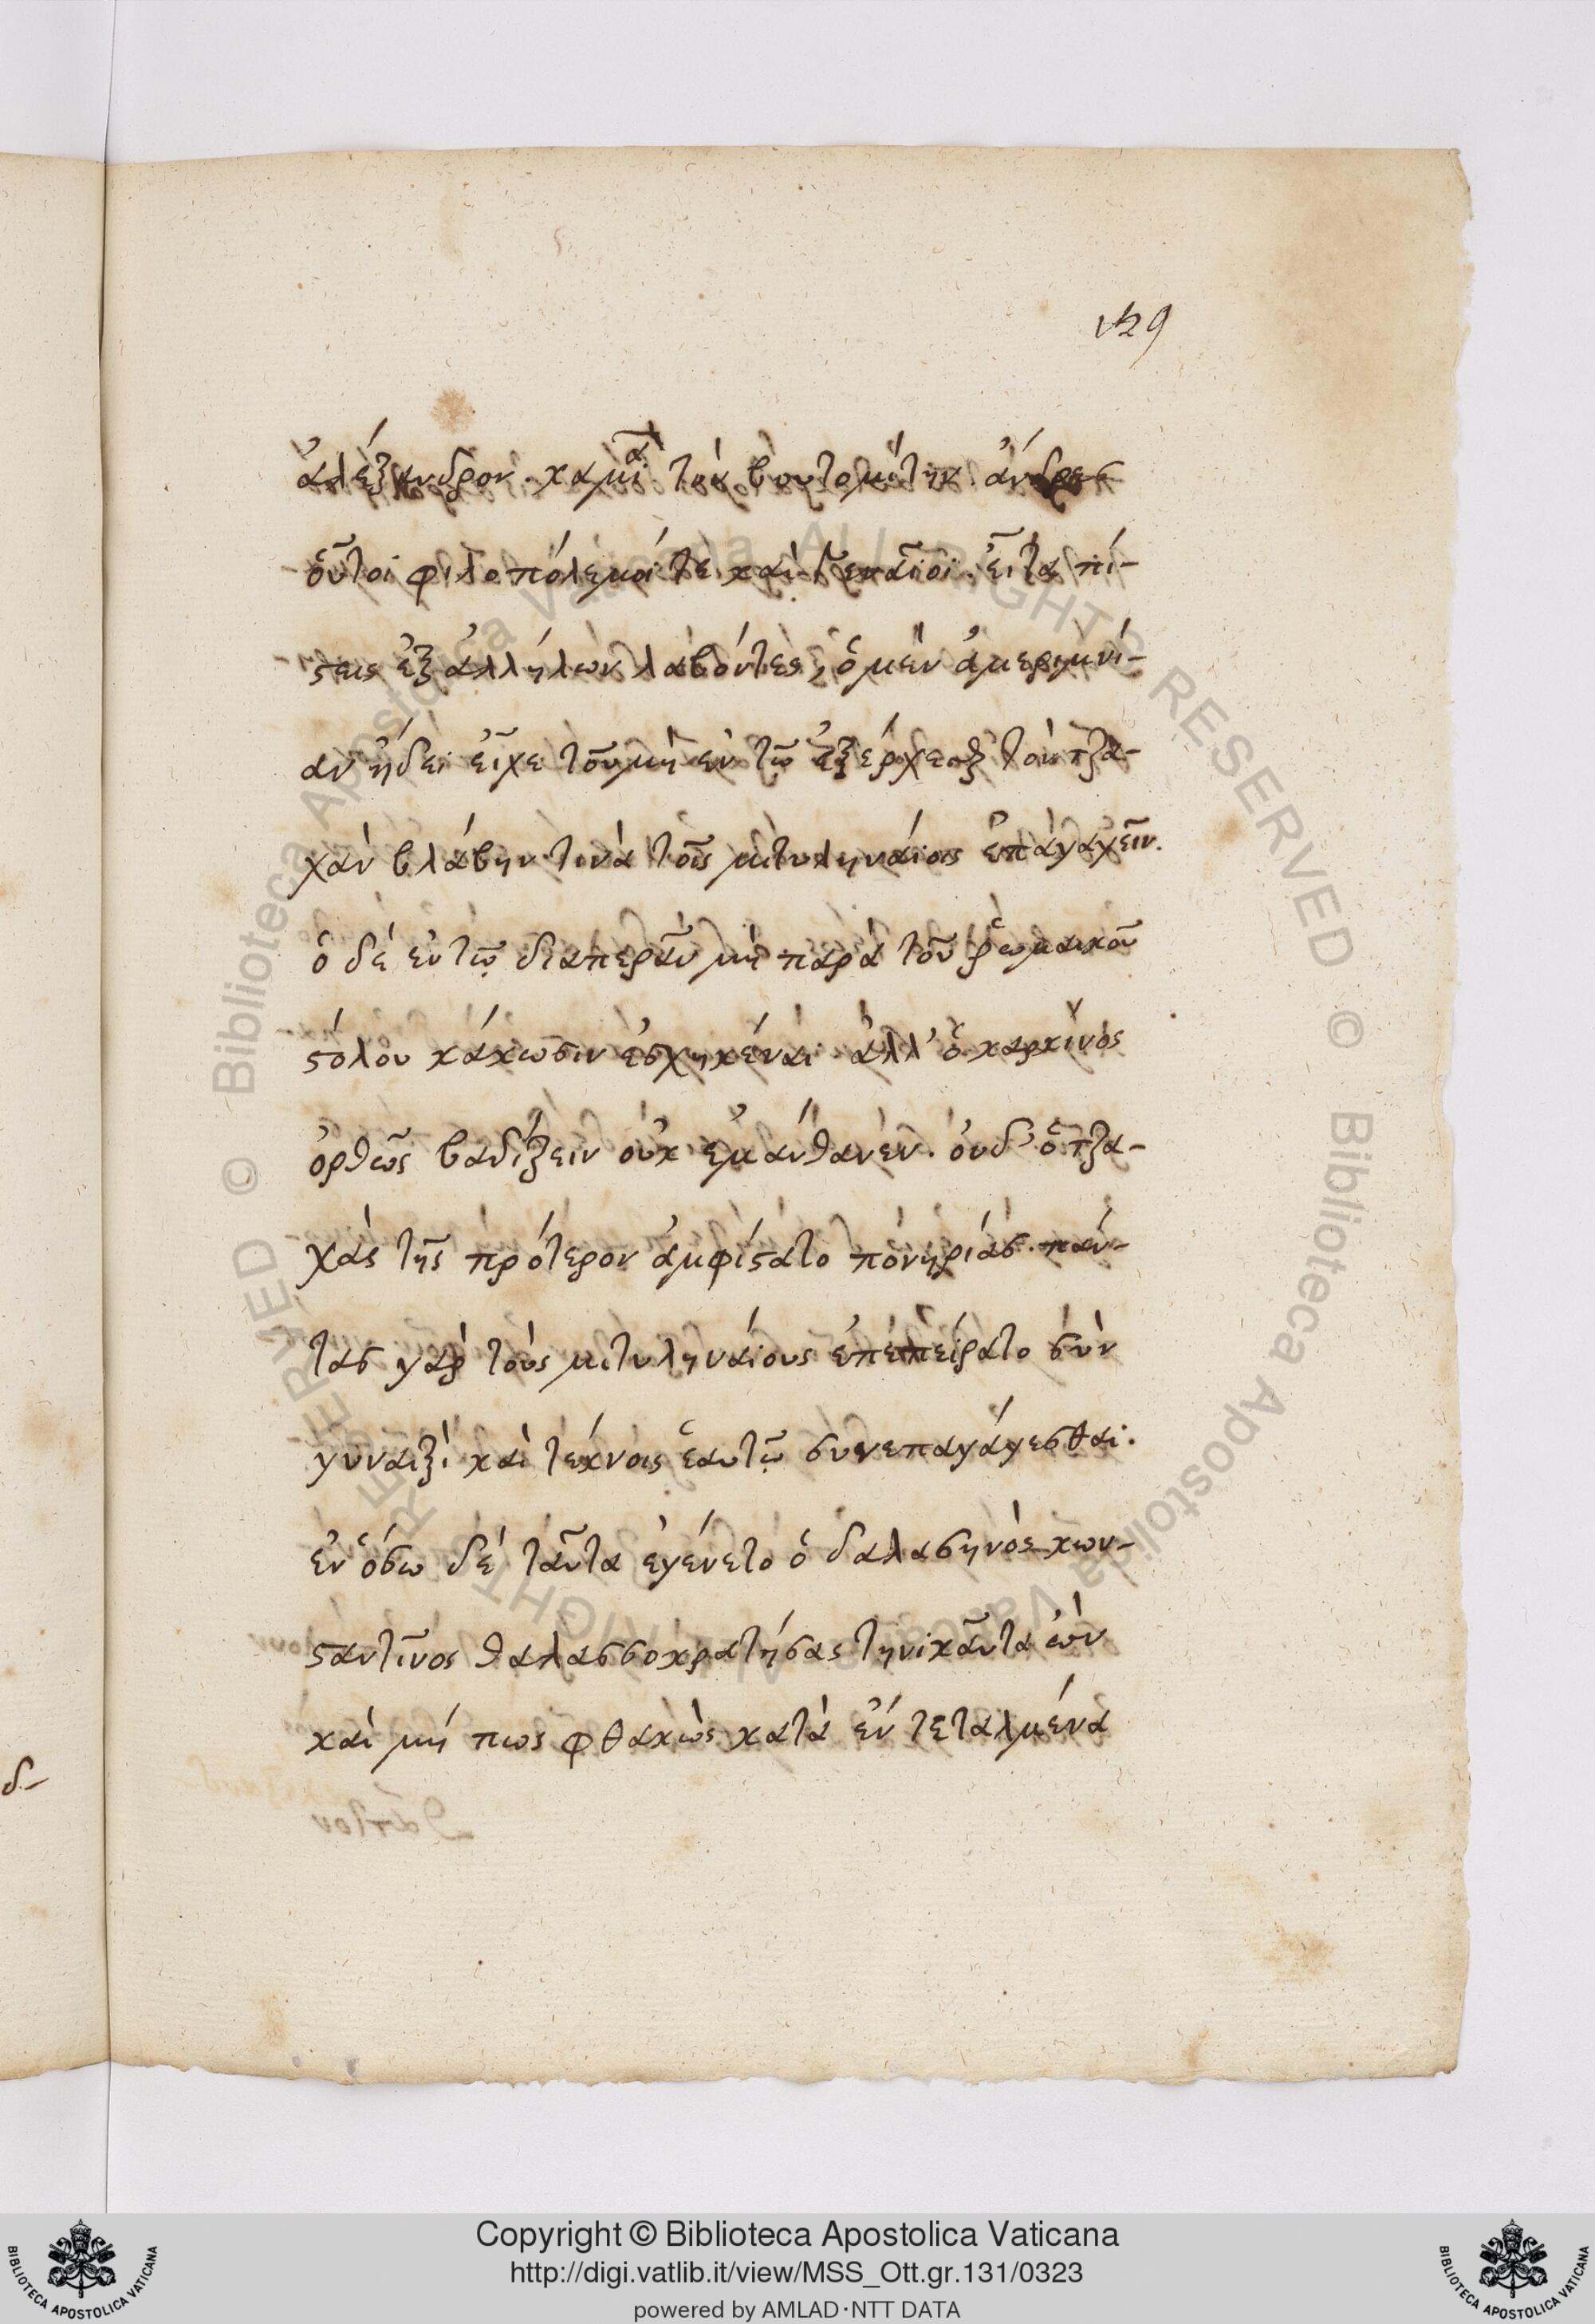 129
ἀλέξανδρον καμὶ α τὸν βουτομίτην ἄνδρες
οὗτοι φιλοπόλεμοί τε καὶ γενναῖοι. εἶτα πί-
στεις ἐξ ἀλλήλων λαβόντες, ὁ μὲν ἀμεριμνί-
αν ἤδει εἶχε τοῦ μὴ ἐν τῷ ἐξέρχεσθαι τὸν τζα-
χὰν βλάβην τινὰ τοῖς μιτυληναίοις ἐπαγαγεῖν.
ὁ δὲ ἐν τῷ διαπερᾶν μὴ παρὰ τοῦ ῥωμαικοῦ
στόλου κάκωσιν ἐσχηκέναι ἀλλ' ὁ καρκῖνος
ὀρθῶς βαδίζειν οὐκ ἐμάνθανεν. οὐδ' ὁ τζα-
χὰς τῆς πρότερον ἀμφίστατο πονηρίας. πάν-
τας γὰρ τοὺς μιτυληναίους ἐπεπείρατο σὺν
γυναιξὶ καὶ τέκνοις ἑαυτῷ συνεπαγάγεσθαι.
ἐν ὅσω δὲ ταῦτα ἐγένετο ὁ δαλασηνὸς κων-
σταντῖνος θαλασσοκρατήσας τηνικαῦτα ὢν
καὶ μή πως φθακὼς κατὰ ἐντεταλμένα
δ-
Copyright © Biblioteca Apostolica Vaticana
http://digi.vatlib.it/view/MSS_Ott.gr.131/0323
powered by AMLAD·NTT DATA
BIBLIOTECA APOSTOLICA VATICANA
BIBLIOTECA APOSTOLICA VATICANA
© Biblioteca Apostolica Vaticana ALL RIGHTS RESERVED
© Biblioteca Apostolica Vaticana ALL RIGHTS RESERVED